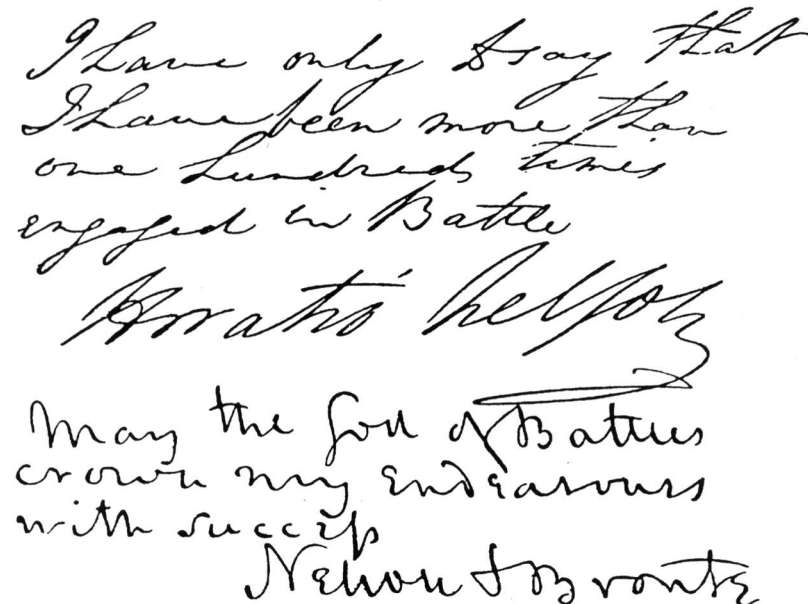 I have only to say that
I have been more than
one hundred times
engaged in Battle
Horatio Nelson
May the God of Battles
crown my Endeavours
with success
Nelson & Bronte